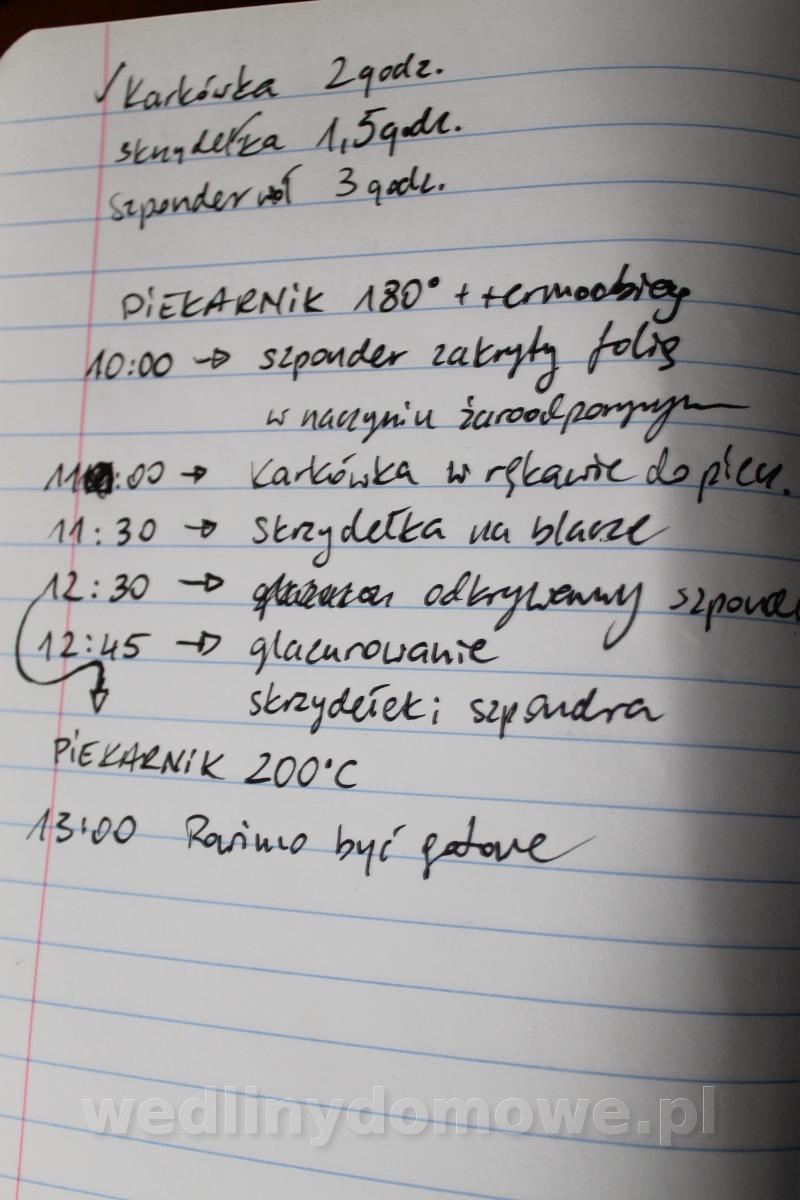 ✓ Karkówka 2 godz.
skrzydełka 1,5 godz.
szponder woł 3 godz.
PIEKARNIK 180° + termoobieg
10:00 → szponder zakryty folią
w naczyniu żaroodpornym
11:00 → Karkówka w rękawie do pieca.
11:30 → Skrzydełka na blasze
12:30 → odkrywamy szpond
12:45 → glazurowanie
skrzydełek i szpondra
PIEKARNIK 200°C
13:00 Powinno być gotowe
wedlinydomowe.pl